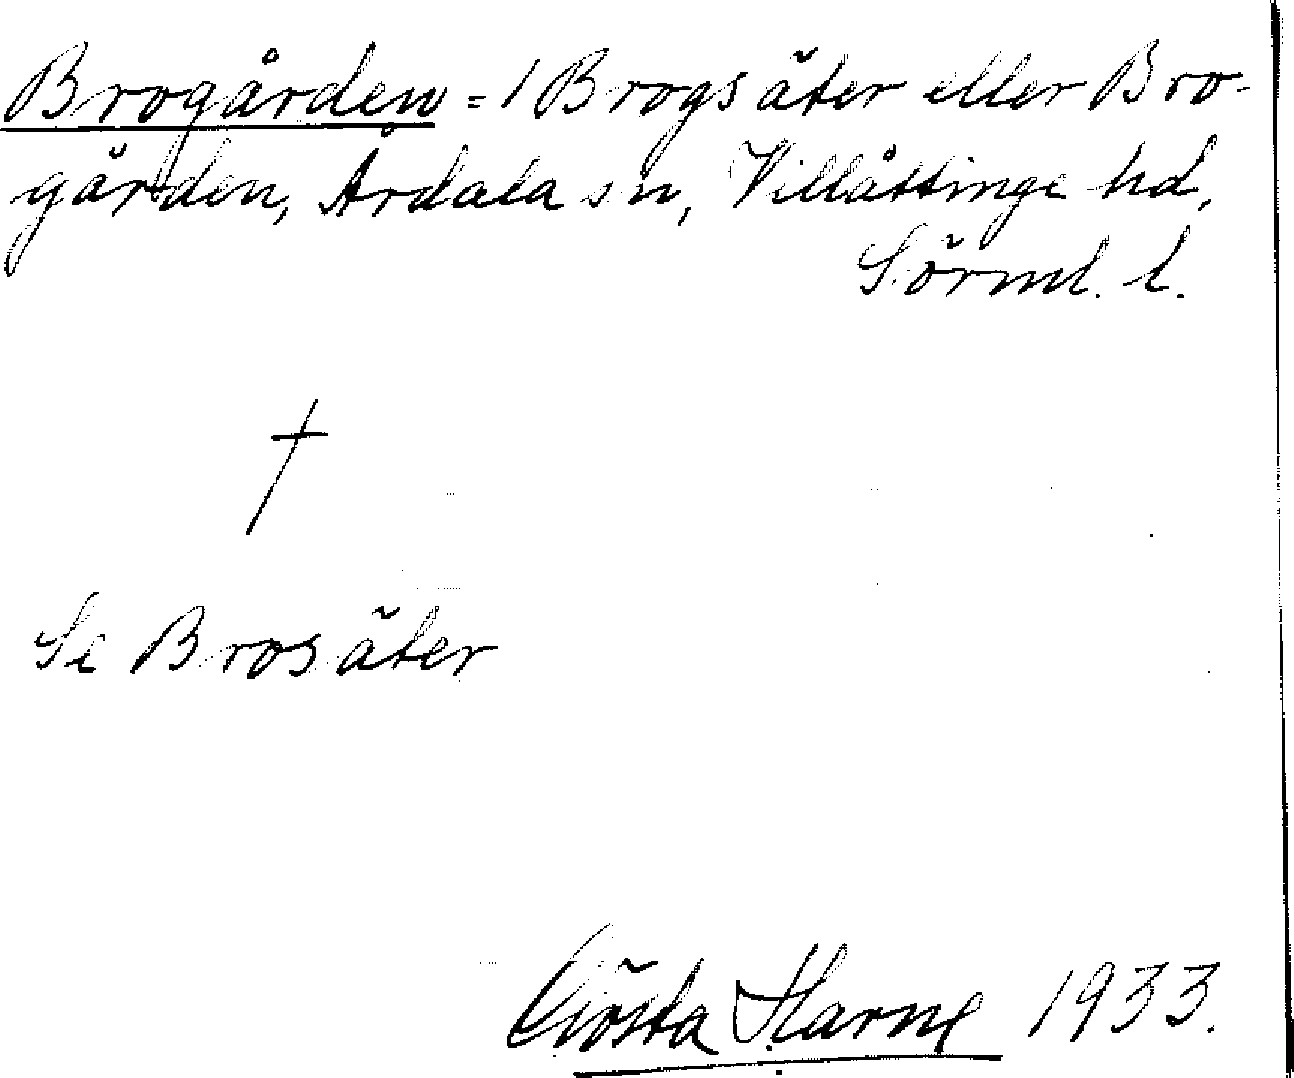 Brogården = / Brogsäter eller Bro-
gården, Årdala sn, Villåttinge hd,
Sörml. l.
†
Se Brosäter
Gösta Harne 1933.